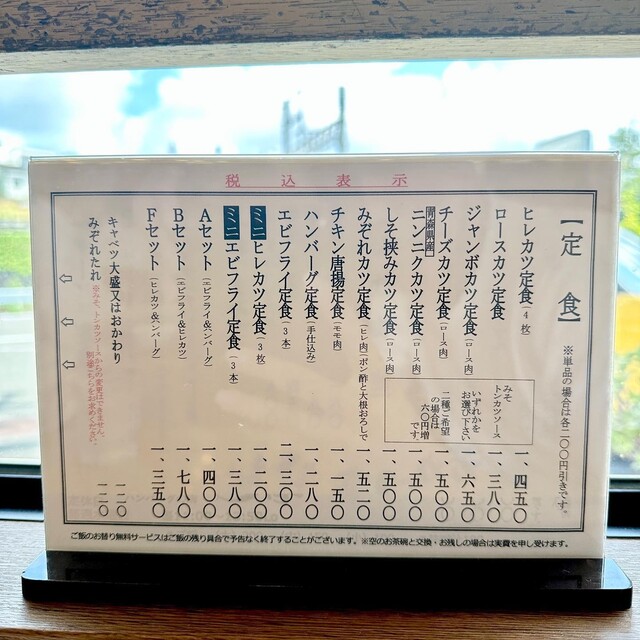 税込表示
【定食】
※単品の場合は各二〇〇円引きです。
ヒレカツ定食(4枚) 一、四五〇
ロースカツ定食 一、三八〇
ジャンボカツ定食(ロース肉) 一、六五〇
チーズカツ定食(ロース肉) 一、五〇〇
青森県産ニンニクカツ定食(ロース肉) 一、五〇〇
しそ挟みカツ定食(ロース肉) 一、五〇〇
みぞれカツ定食(ヒレ肉)ポン酢と大根おろしで 一、五二〇
チキン唐揚定食(モモ肉) 一、一五〇
ハンバーグ定食(手仕込み) 一、二八〇
エビフライ定食(3本) 二、三〇〇
ミニヒレカツ定食(3枚) 一、二〇〇
ミニエビフライ定食(3本) 一、三八〇
Aセット(エビフライ&ハンバーグ) 一、四〇〇
Bセット(エビフライ&ヒレカツ) 一、七八〇
Fセット(ヒレカツ&ハンバーグ) 一、三五〇
キャベツ大盛又はおかわり 一二〇
みぞれたれ 一二〇
※みそ、トンカツソースからの変更はできません。
別途こちらをお求めください。
みそ
トンカツソース
いずれかを
お選び下さい
二種ご希望
の場合は
六〇円増
です。
ご飯のお替り無料サービスはご飯の残り具合で予告なく終了することがございます。※空のお茶碗と交換・お残しの場合は実費を申し受けます。